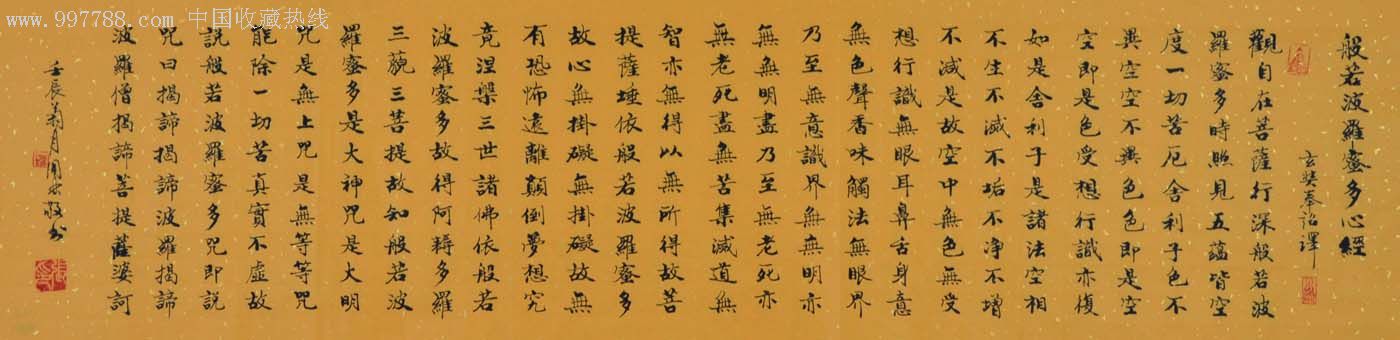 www.997788.com 中国收藏热线
般若波羅蜜多心經
玄奘奉詔譯
觀自在菩薩行深般若波
羅蜜多時照見五蘊皆空
度一切苦厄舍利子色不
異空空不異色色即是空
空即是色受想行識亦復
如是舍利子是諸法空相
不生不滅不垢不净不增
不減是故空中無色無受
想行識無眼耳鼻舌身意
無色聲香味觸法無眼界
乃至無意識界無無明亦
無無明盡乃至無老死亦
無老死盡無苦集滅道無
智亦無得以無所得故菩
提薩埵依般若波羅蜜多
故心無掛礙無掛礙故無
有恐怖遠離顛倒夢想究
竟涅槃三世諸佛依般若
波羅蜜多故得阿耨多羅
三藐三菩提故知般若波
羅蜜多是大神咒是大明
咒是無上咒是無等等咒
能除一切苦真實不虛故
說般若波羅蜜多咒即說
咒曰揭諦揭諦波羅揭諦
波羅僧揭諦菩提薩婆訶
壬辰菊月敬书